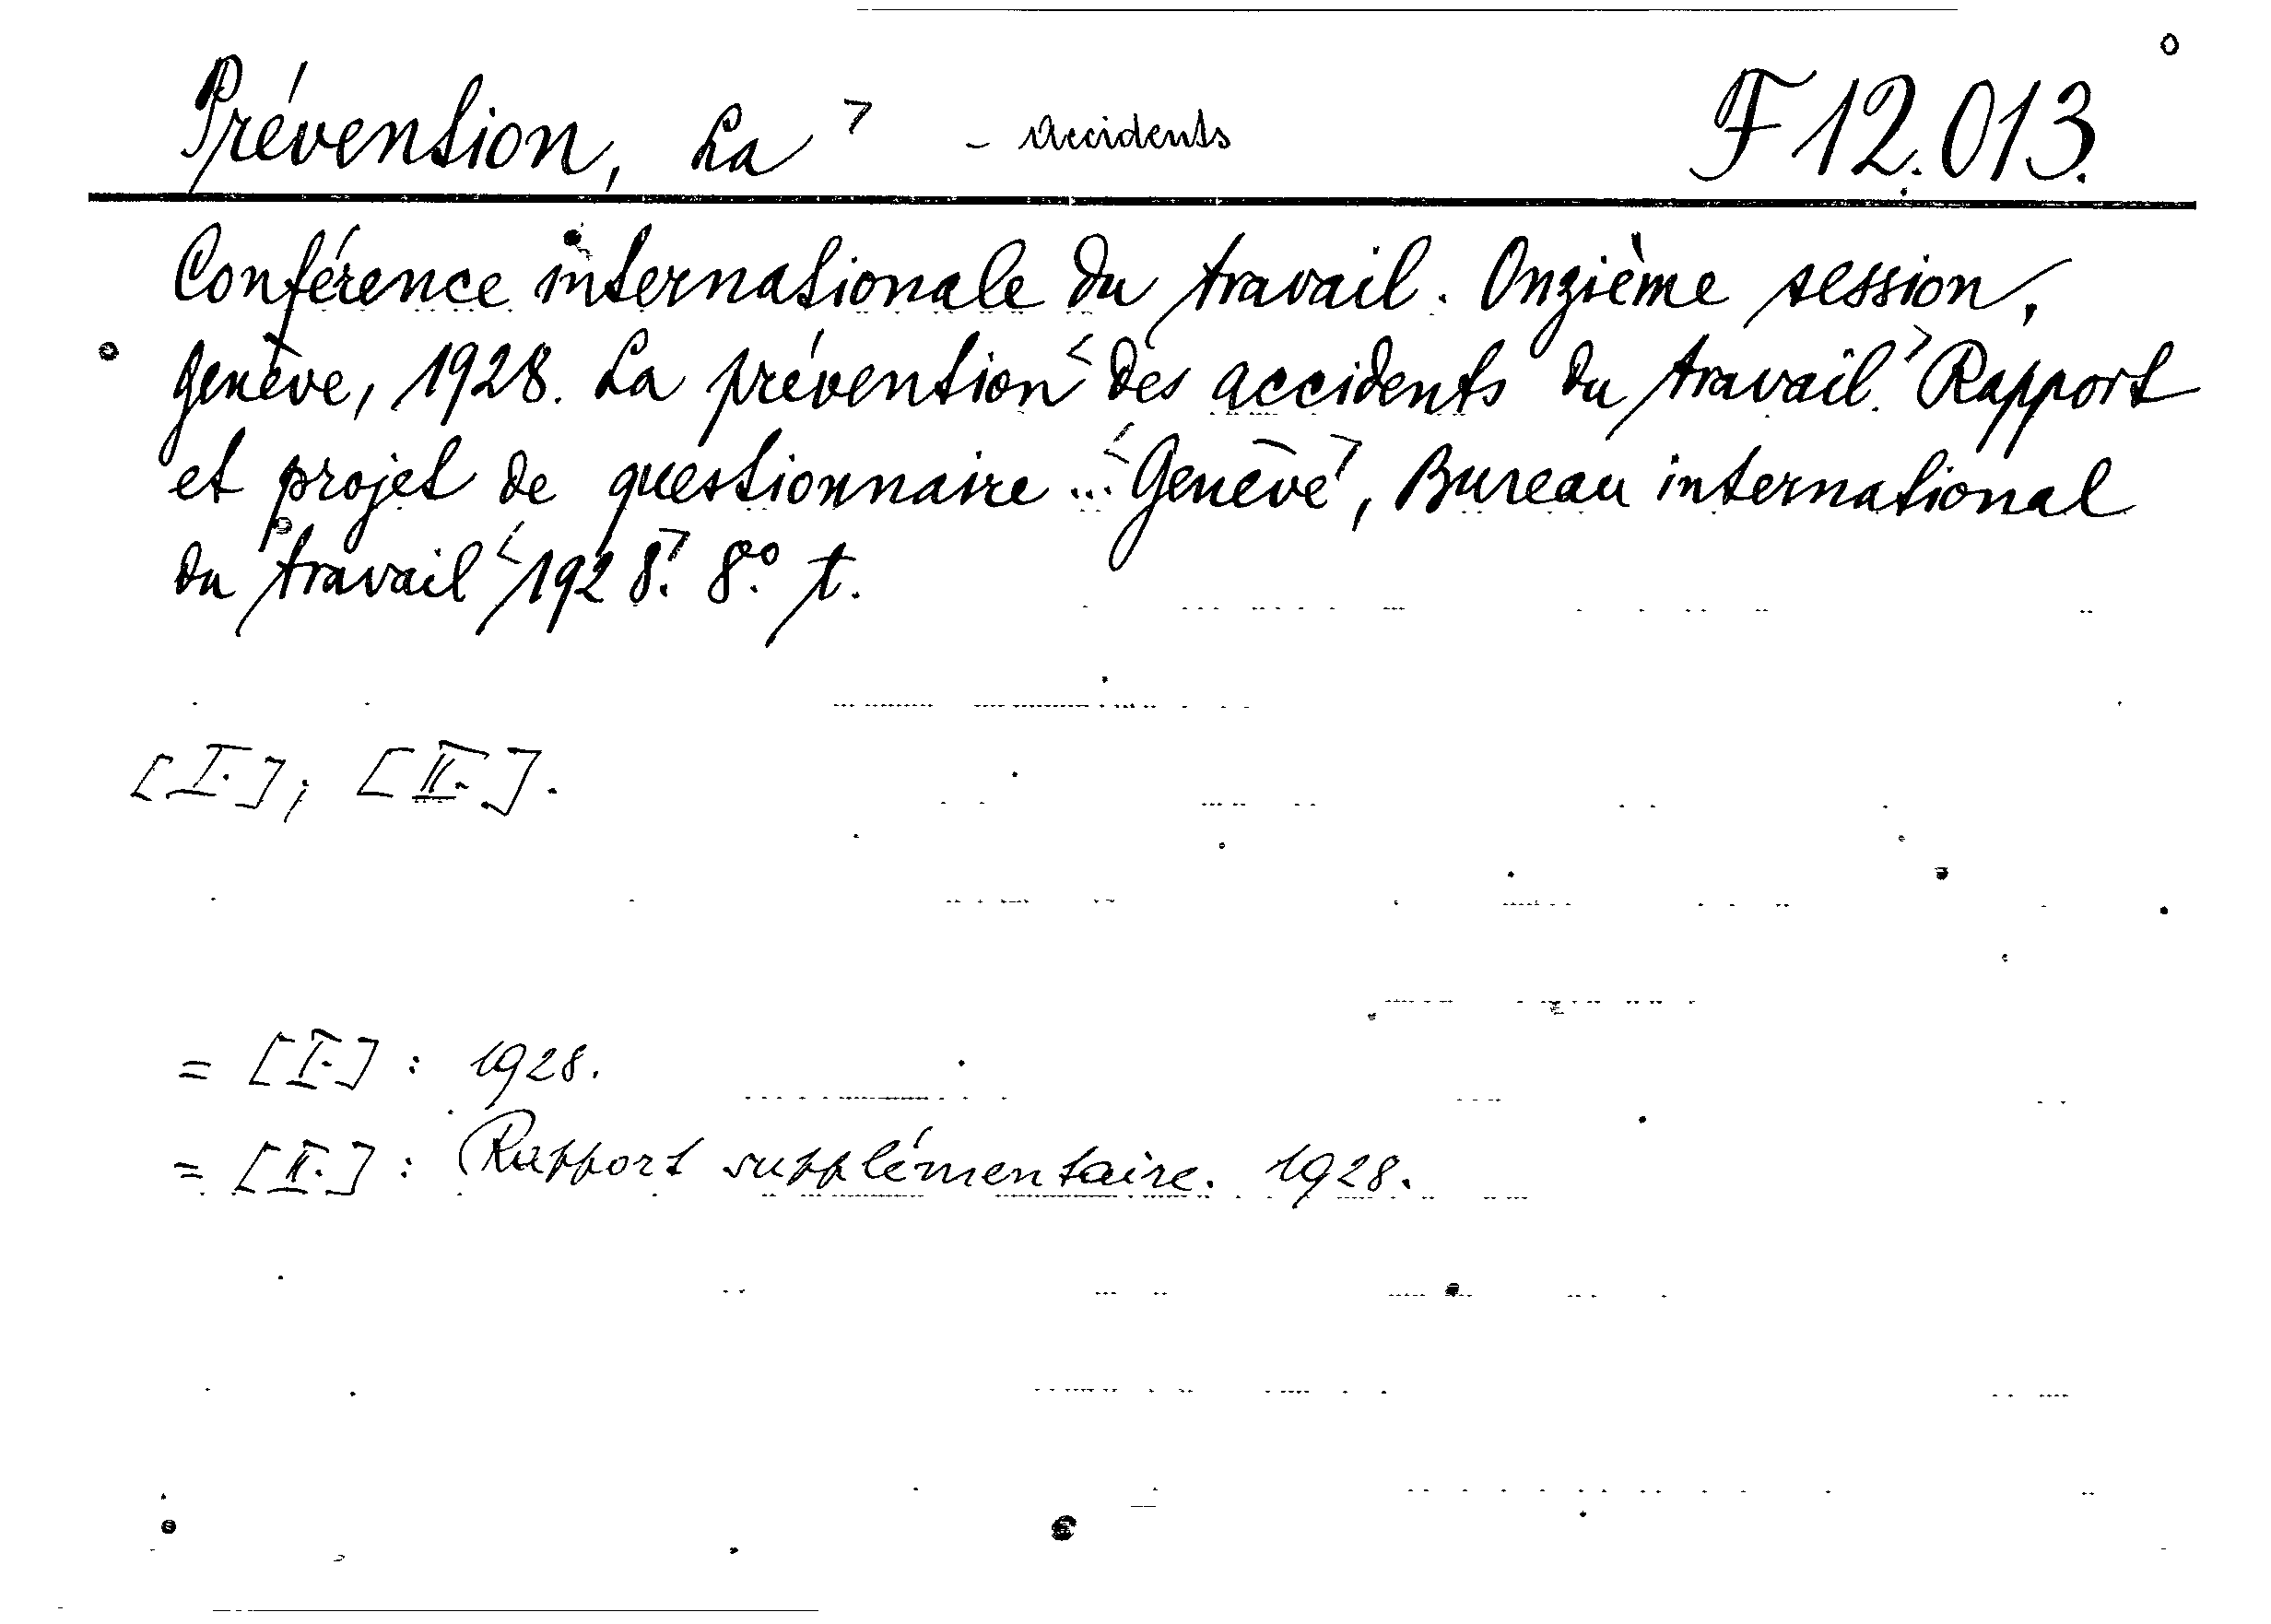 Prévention, La > - Accidents F 12.013.
Conférence internationale du travail. Onzième session,
Genève, 1928. La prévention < des accidents du travail.> Rapport
et projet de questionnaire ... <Genève>, Bureau international
du travail <1928.> 8.° t.
[I.]; [II.].
= [I.] : 1928.
= [II.] : Rapport supplémentaire. 1928.